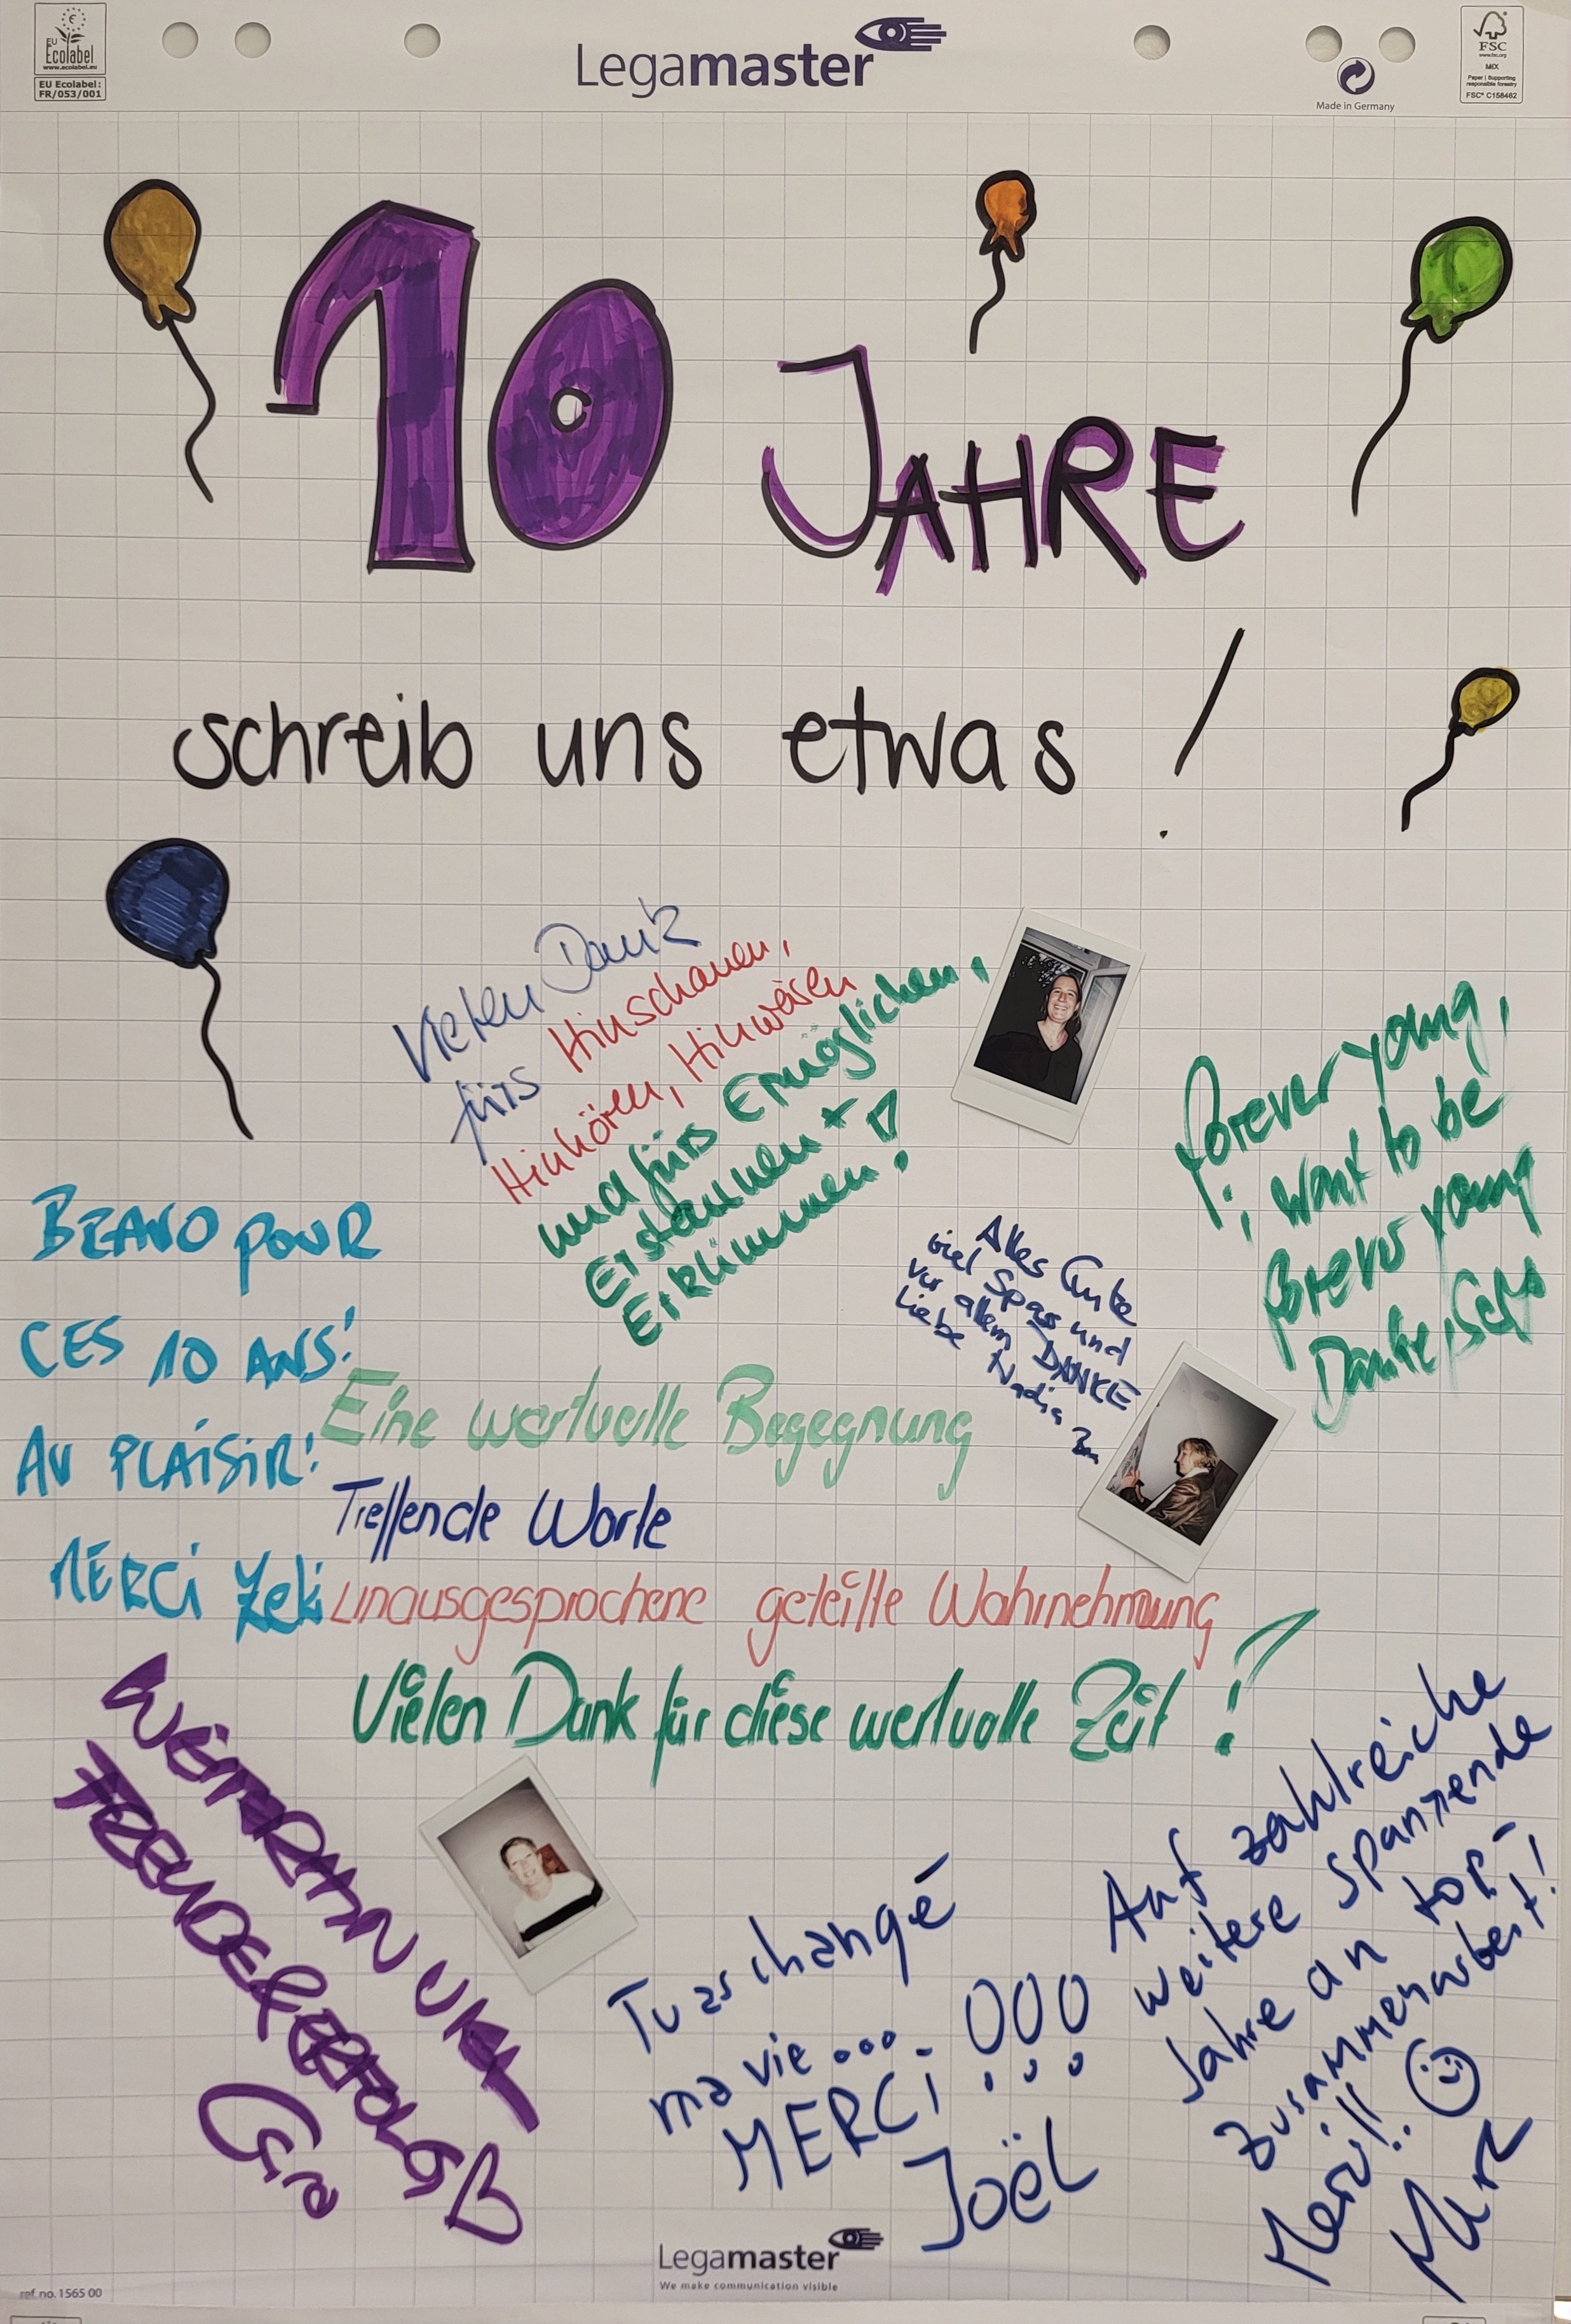 EU
Ecolabel
www.ecolabel.eu
EU Ecolabel:
FR/053/001
Legamaster
Made in Germany
FSC
www.fsc.org
MIX
Paper | Supporting
responsible forestry
FSC® C158462
10 JAHRE
schreib uns etwas !
Vielen Dank
fürs Hinschauen,
Hinhören, Hinweisen
und fürs Ermöglichen,
Erstaunen +
Erklimmen!
forever young,
i want to be
forever young
Danke,
Alles Gute
viel Spass und
vor allem DANKE
Liebe Nadia
BRAVO POUR
CES 10 ANS!
AU PLAISIR!
MERCI Zeki
Eine wertvolle Begegnung
Treffende Worte
Unausgesprochene geteilte Wahrnehmung
Vielen Dank für diese wertvolle Zeit!
WEITERHIN VIEL
FREUDE & ERFOLG ♡
Tu as changé
ma vie ....
MERCI !!!
Joël
Auf zahlreiche
weitere spannende
Jahre an top-
Zusammenarbeit!
Merci!! ☺
Marc
Legamaster
We make communication visible
ref. no. 1565 00